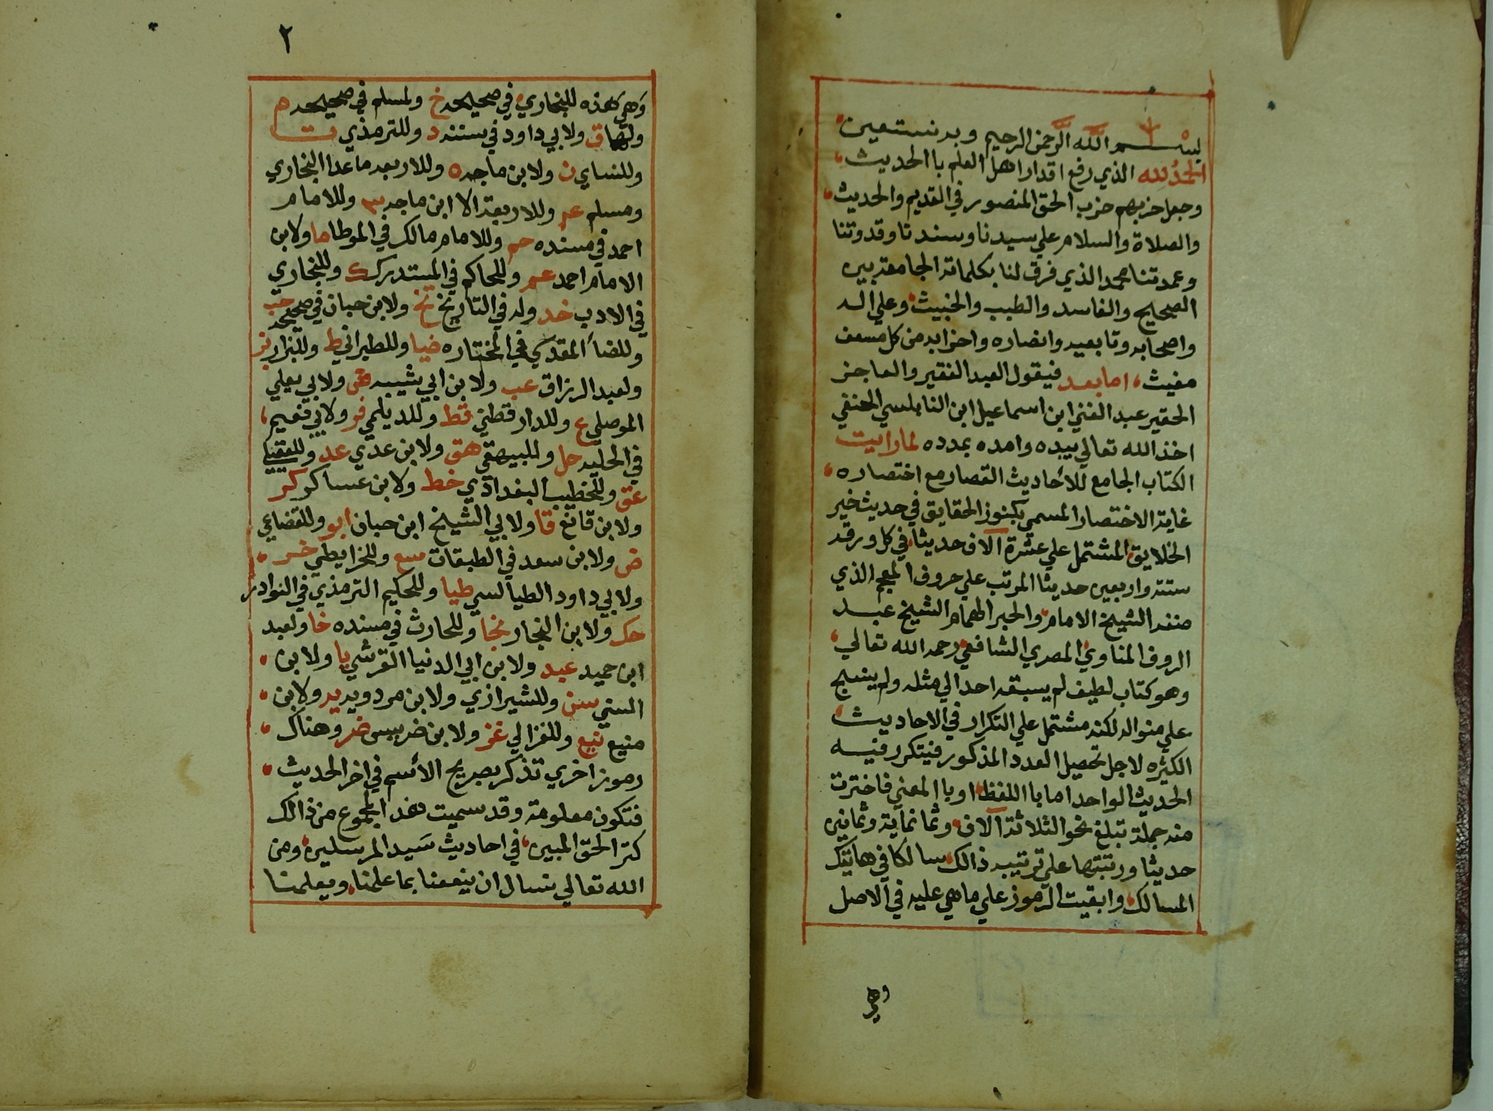 بسم الله الرحمن الرحيم وبه نستعين
الحمد لله الذي رفع اقدار اهل العلم باالحديث
وجعل حزبهم حزب الحق المنصور في القديم والحديث
والصلاة والسلام علي سيدنا وسندنا وقدوتنا
وعمدتنا محمد الذي فرق لنا بكلماته الجامعة بين
الصحيح والفاسد والطيب والخبيث وعلي اله
واصحابه وتابعيه وانصاره واحزابه من كل مسعف
مغيث اما بعد فيقول العبد الفقير والعاجز
الحقير عبد الغني ابن اسماعيل ابن النابلسي الحنفي
اخذ الله تعالي بيده وامده بمدده لما رايت
الكتاب الجامع للأحاديث القصار مع اختصاره
غاية الاختصار المسمي بكنوز الحقايق في حديث خير
الخلايق المشتمل علي عشرة آلاف حديثا في كل ورقة
ستة واربعين حديثا المرتب علي حروف المعجم الذي
صنفه الشيخ الامام والحبر الهمام الشيخ عبد
الروف المناوي المصري الشافعي رحمه الله تعالي
وهو كتاب لطيف لم يسبقه احد الي مثله ولم ينسج
علي منواله لكنه مشتمل علي التكرار في الاحاديث
الكثيره لاجل تحصيل العدد المذكور فيتكرر فيه
الحديث الواحد اما باا اللفظ او باا المعني فاخترت
منه جملة تبلغ نحو الثلاثة آلاف وثمانماية وثمانين
حديثا ورتبتها علي ترتيب ذالك سالكا في هاتيك
المسالك وابقيت الرموز علي ماهي عليه في الاصل
وهي
٢
وهي هذه للبخاري في صحيحه خ ولمسلم في صحيحه م
ولهما ق ولابي داود في سننه د وللترمذي ت
وللنساي ن ولابن ماجه ه وللاربعه ما عدا البخاري
ومسلم عر وللاربعة الا ابن ماجه ٣ وللامام
احمد في مسنده حم وللامام مالك في الموطا ما ولابن
الامام احمد عم وللحاكم في المستدرك ك وللبخاري
في الادب خد وله في التاريخ تخ ولابن حبان في صحيحه حب
وللضيا المقدسي في المختاره ضيا وللطبراني ط وللبزار بز
ولعبد الرزاق عب ولابن ابي شيبه ولابي يعلي
الموصلي ع وللدارقطني قط وللديلمي فر ولابي نعيم
في الحليه حل وللبيهقي هق ولابن عدي عد وللعقيلي
عق وللخطيب البغدادي خط ولابن عساكر كر
ولابن قانع قا ولابي الشيخ ابن حبان ابو وللقضاعي
ض ولابن سعد في الطبقات سع وللخرايطي خر
ولابي داود الطيالسي طيا وللحكيم الترمذي في النوادر
حك ولابن النجار نجا وللحارث في مسنده خا ولعبد
ابن حميد عبد ولابن ابي الدنيا القرشي يا ولابن
السني سن وللشيرازي ولابن مردويه يد ولابن
منيع نيع وللغزالي غز ولابن ضريس ضر وهناك
رموز اخري تذكر بصريح الأسم في اخر الحديث
فتكون معلومة وقد سميت هذا المجموع من ذالك
كنز الحق المبين في احاديث سيد المرسلين ومن
الله تعالي نسال ان ينفعنا بما علمنا ويعلمنا